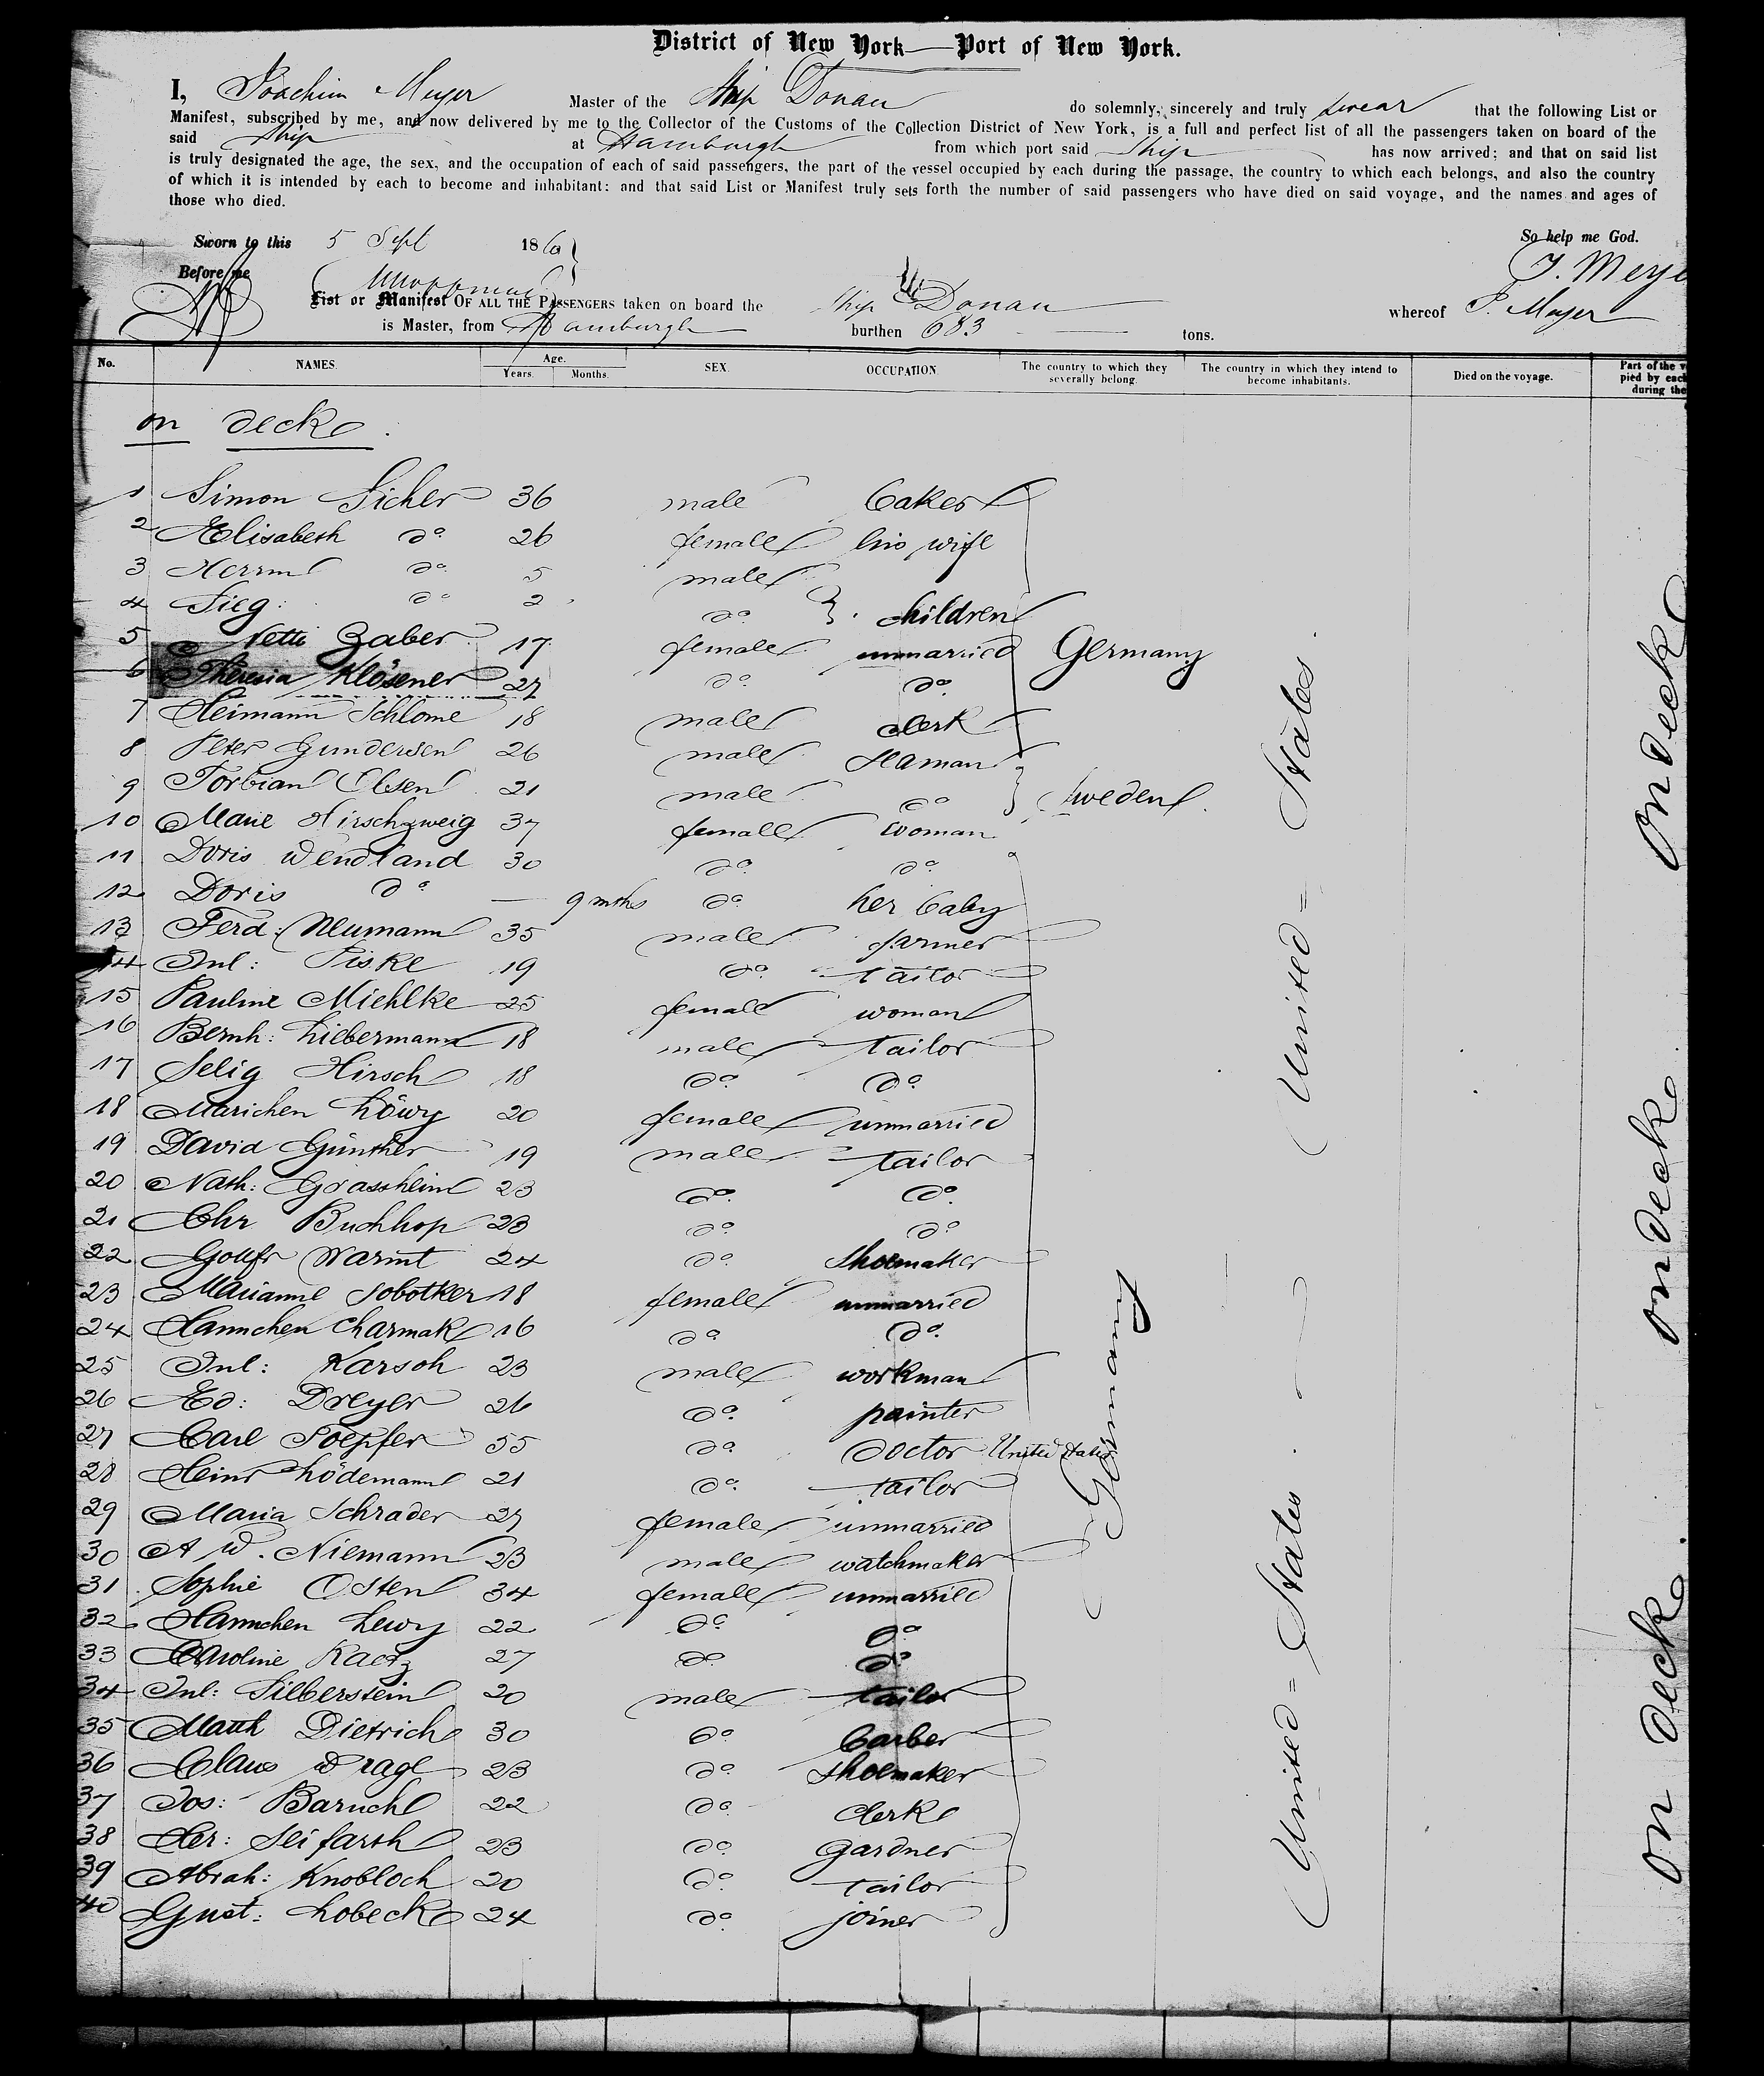 District of New York — Port of New York.
I, Joachim Meyer Master of the Ship Donau do solemnly, sincerely and truly swear that the following List or
Manifest, subscribed by me, and now delivered by me to the Collector of the Customs of the Collection District of New York, is a full and perfect list of all the passengers taken on board of the
said Ship at Hamburgh from which port said Ship has now arrived; and that on said list
is truly designated the age, the sex, and the occupation of each of said passengers, the part of the vessel occupied by each during the passage, the country to which each belongs, and also the country
of which it is intended by each to become and inhabitant: and that said List or Manifest truly sets forth the number of said passengers who have died on said voyage, and the names and ages of
those who died.
Sworn to this 5 Sept 186 So help me God.
Before me J. Meye
List or Manifest OF ALL THE PASSENGERS taken on board the Ship Donau whereof J. Meyer
is Master, from Hamburgh burthen 683 tons.
No. NAMES. Age. Years. Months. SEX. OCCUPATION. The country to which they severally belong. The country in which they intend to become inhabitants. Died on the voyage. Part of the v pied by each during the
on deck.
1 Simon Sicher 36 male baker
2 Elisabeth do 26 female his wife
3 Herrm do 5 male
4 Sieg: do 2 do } children
5 Netti Zaber 17 female unmarried Germany
6 Theresia Klösener 27 do do
7 Heimann Schlome 18 male clerk
8 Peter Gundersen 26 male seaman
9 Torbian Olsen 21 male do } Sweden
10 Marie Hirschzweig 37 female woman
11 Doris Wendland 30 do do
12 Doris do — 9 mths do her baby
13 Ferd: Neumann 35 male farmer
14 Jul: Piske 19 do tailor
15 Pauline Miehlke 25 female woman
16 Bernh: Liebermann 18 male tailor
17 Selig Hirsch 18 do do
18 Marichen Löwy 20 female unmarried
19 David Günther 19 male tailor
20 Nath: Grassheim 23 do do
21 Chr Buchhop 23 do do
22 Gottfr Warnt 24 do shoemaker
23 Marianne Sobotker 18 female unmarried
24 Hannchen Charmak 16 do do
25 Jul: Karsoh 23 male workman
26 Ed: Dreyer 26 do painter
27 Carl Toepfer 55 do Doctor United States
28 Heinr Lödemann 21 do tailor
29 Maria Schrader 27 female unmarried
30 A W. Niemann 23 male watchmaker
31 Sophie Osten 34 female unmarried
32 Hannchen Lewy 22 do do
33 Caroline Kaetz 27 do do
34 Jul: Silberstein 20 male tailor
35 Math Dietrich 30 do barber
36 Claus Dragl 23 do shoemaker
37 Jos: Baruch 22 do clerk
38 Her: Seifarth 23 do gardner
39 Abrah: Knobloch 20 do tailor
40 Gust: Lobeck 24 do joiner
Germany
United = States
United = States
on deck
on deck
on deck